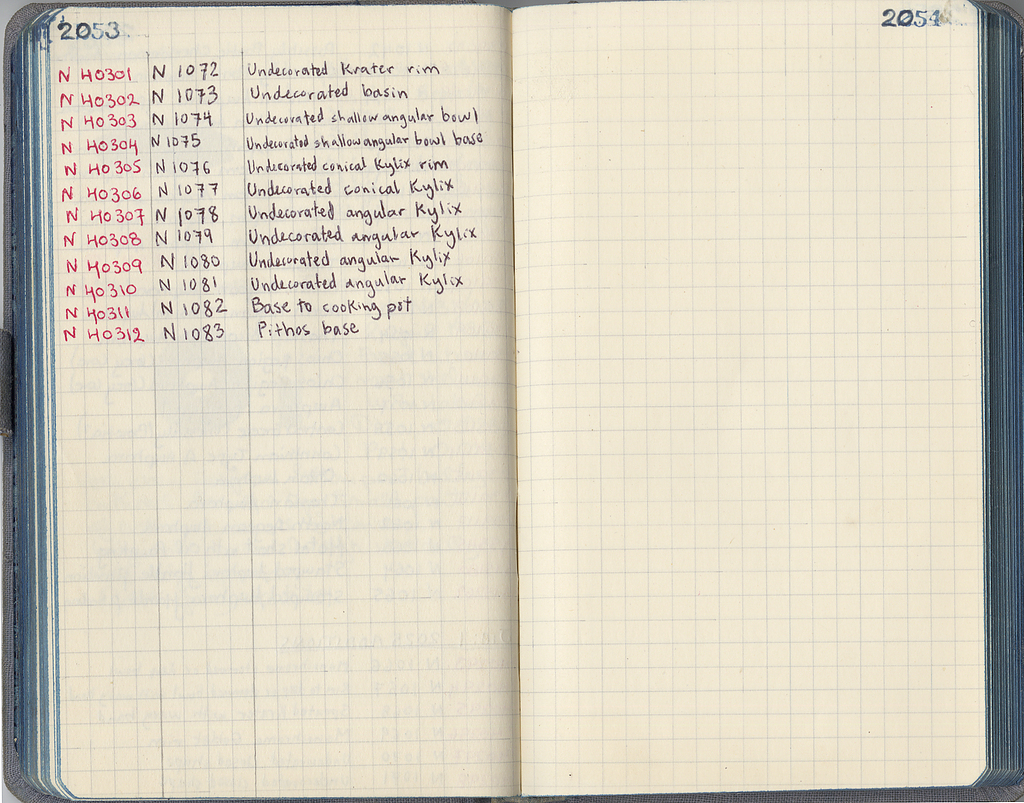 2053
N 40301 N 1072 Undecorated Krater rim
N 40302 N 1073 Undecorated basin
N 40303 N 1074 Undecorated shallow angular bowl
N 40304 N 1075 Undecorated shallow angular bowl base
N 40305 N 1076 Undecorated conical Kylix rim
N 40306 N 1077 Undecorated conical Kylix
N 40307 N 1078 Undecorated angular Kylix
N 40308 N 1079 Undecorated angular Kylix
N 40309 N 1080 Undecorated angular Kylix
N 40310 N 1081 Undecorated angular Kylix
N 40311 N 1082 Base to cooking pot
N 40312 N 1083 Pithos base
2054